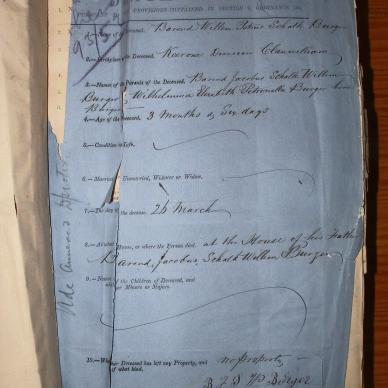 PROVISIONS CONTAINED IN SECTION 9, ORDINANCE 104,
Name of the Deceased, Barend Willem Petrus Schalk Burger
2.—Birthplace of the Deceased, Division Clanwilliam
3.—Names of the Parents of the Deceased, Barend Jacobus Schalk Willem
Burger & Wilhelmina Elizabeth Petronella Burger born
Burger
4.—Age of the Deceased, 3 Months & Six days
5.—Condition in Life,
6.—Married or Unmarried, Widower or Widow,
7.—The day of the decease, 26 March
8.—At what House, or where the Person died, at the House of his Father
Barend, Jacobus, Schalk Willem Burger
9.—Names of the Children of Deceased, and
whether Minors or Majors.
10.—Whether Deceased has left any Property, and
of what kind, no property
B J S W Burger
Vide annexed